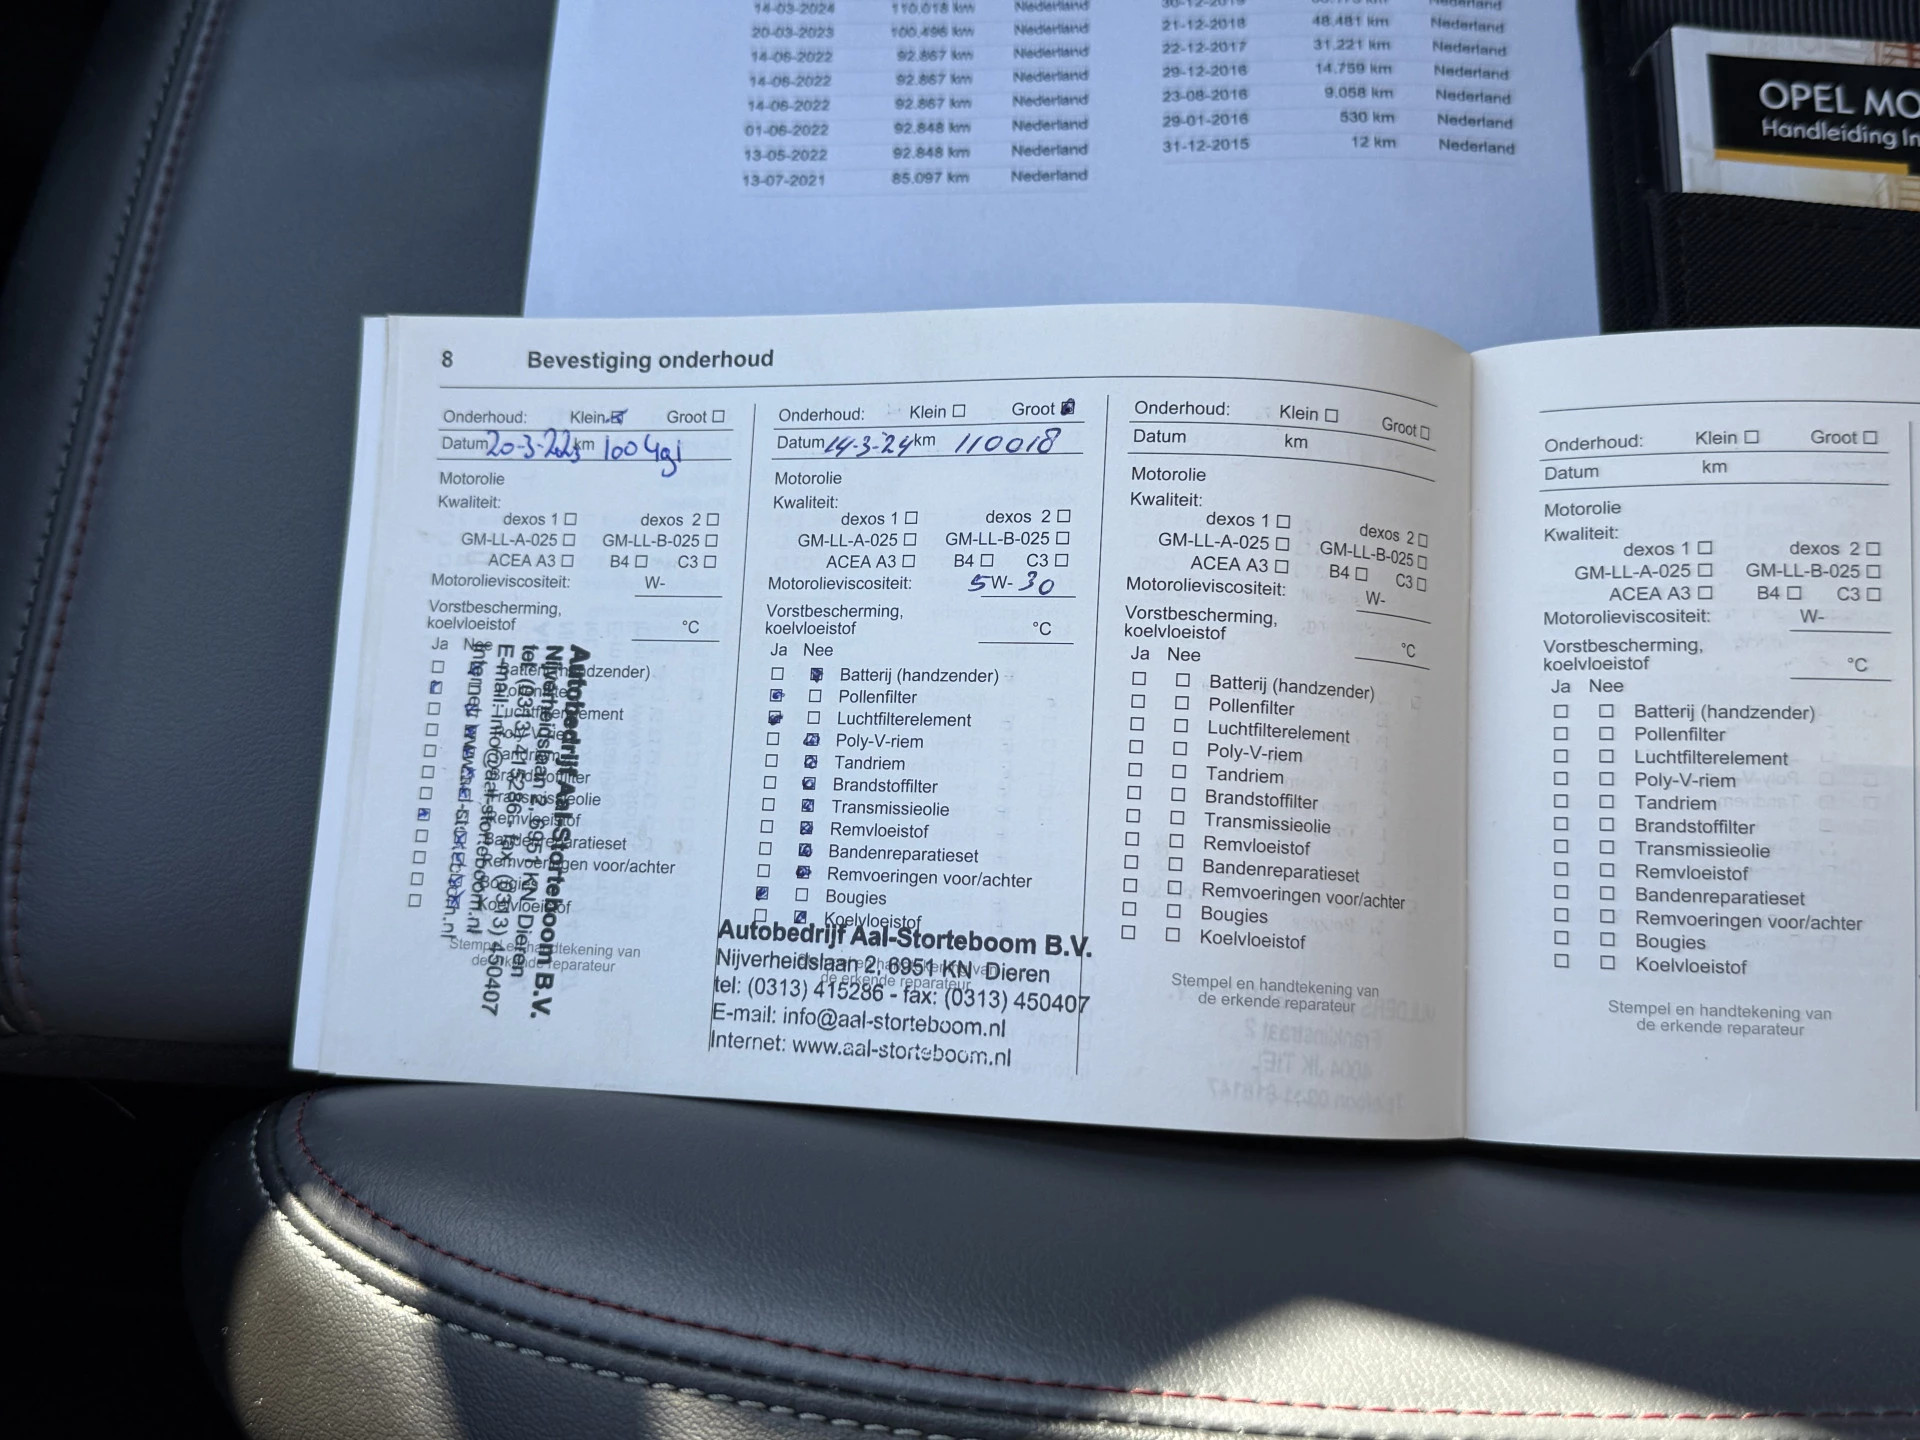 14-03-2024 110.018 km Nederland
20-03-2023 100.496 km Nederland
14-06-2022 92.867 km Nederland
14-06-2022 92.867 km Nederland
14-06-2022 92.867 km Nederland
01-06-2022 92.848 km Nederland
13-05-2022 92.848 km Nederland
13-07-2021 85.097 km Nederland
30-12-2019 km Nederland
21-12-2018 48.481 km Nederland
22-12-2017 31.221 km Nederland
29-12-2016 14.759 km Nederland
23-08-2016 9.058 km Nederland
29-01-2016 530 km Nederland
31-12-2015 12 km Nederland
OPEL MO
Handleiding In
8 Bevestiging onderhoud
Onderhoud: Klein Groot
Datum 20-3-2023 km
Motorolie
Kwaliteit:
dexos 1 dexos 2
GM-LL-A-025 GM-LL-B-025
ACEA A3 B4 C3
Motorolieviscositeit: W-
Vorstbescherming,
koelvloeistof °C
Ja Nee
Batterij (handzender)
Pollenfilter
Luchtfilterelement
Poly-V-riem
Tandriem
Brandstoffilter
Transmissieolie
Remvloeistof
Bandenreparatieset
Remvoeringen voor/achter
Bougies
Koelvloeistof
Stempel en handtekening van
de erkende reparateur
Autobedrijf Aal-Storteboom B.V.
Nijverheidslaan 2, 6951 KN Dieren
tel: (0313) 415286 - fax: (0313) 450407
E-mail: info@aal-storteboom.nl
Internet: www.aal-storteboom.nl
Onderhoud: Klein Groot
Datum 14-3-24 km 110018
Motorolie
Kwaliteit:
dexos 1 dexos 2
GM-LL-A-025 GM-LL-B-025
ACEA A3 B4 C3
Motorolieviscositeit: 5W-30
Vorstbescherming,
koelvloeistof °C
Ja Nee
Batterij (handzender)
Pollenfilter
Luchtfilterelement
Poly-V-riem
Tandriem
Brandstoffilter
Transmissieolie
Remvloeistof
Bandenreparatieset
Remvoeringen voor/achter
Bougies
Koelvloeistof
Stempel en handtekening van
de erkende reparateur
Autobedrijf Aal-Storteboom B.V.
Nijverheidslaan 2, 6951 KN Dieren
tel: (0313) 415286 - fax: (0313) 450407
E-mail: info@aal-storteboom.nl
Internet: www.aal-storteboom.nl
Onderhoud: Klein Groot
Datum km
Motorolie
Kwaliteit:
dexos 1 dexos 2
GM-LL-A-025 GM-LL-B-025
ACEA A3 B4 C3
Motorolieviscositeit: W-
Vorstbescherming,
koelvloeistof °C
Ja Nee
Batterij (handzender)
Pollenfilter
Luchtfilterelement
Poly-V-riem
Tandriem
Brandstoffilter
Transmissieolie
Remvloeistof
Bandenreparatieset
Remvoeringen voor/achter
Bougies
Koelvloeistof
Stempel en handtekening van
de erkende reparateur
Onderhoud: Klein Groot
Datum km
Motorolie
Kwaliteit:
dexos 1 dexos 2
GM-LL-A-025 GM-LL-B-025
ACEA A3 B4 C3
Motorolieviscositeit: W-
Vorstbescherming,
koelvloeistof °C
Ja Nee
Batterij (handzender)
Pollenfilter
Luchtfilterelement
Poly-V-riem
Tandriem
Brandstoffilter
Transmissieolie
Remvloeistof
Bandenreparatieset
Remvoeringen voor/achter
Bougies
Koelvloeistof
Stempel en handtekening van
de erkende reparateur